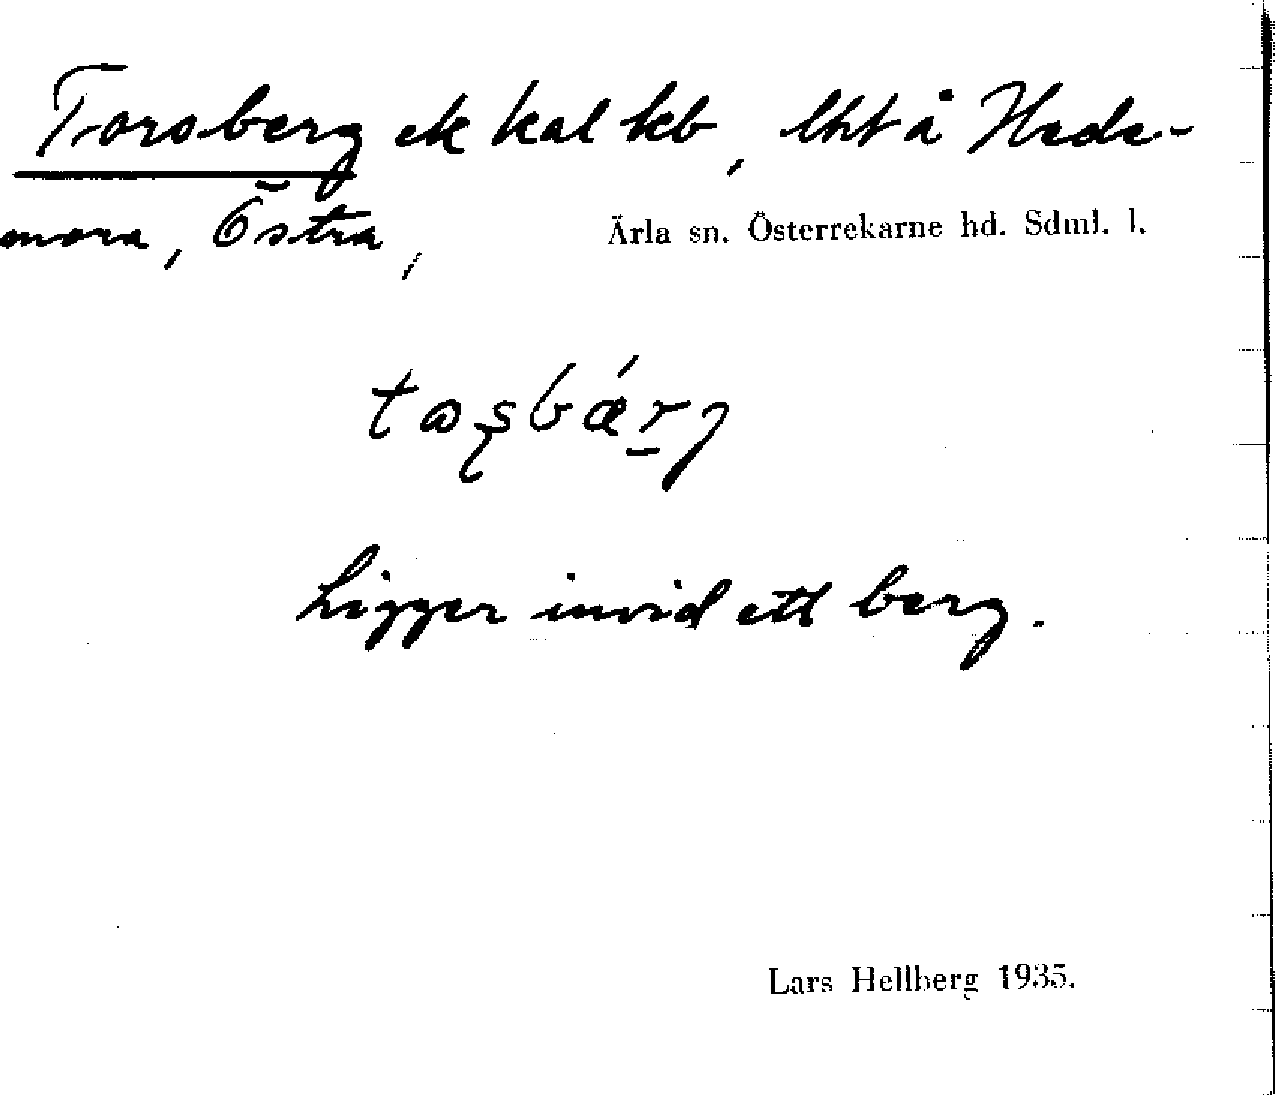 Torsberg ek kal kb, lht å Hede-
mora, Östra,
Ärla sn. Österrekarne hd. Sdml. l.
Ligger invid ett berg.
Lars Hellberg 1935.